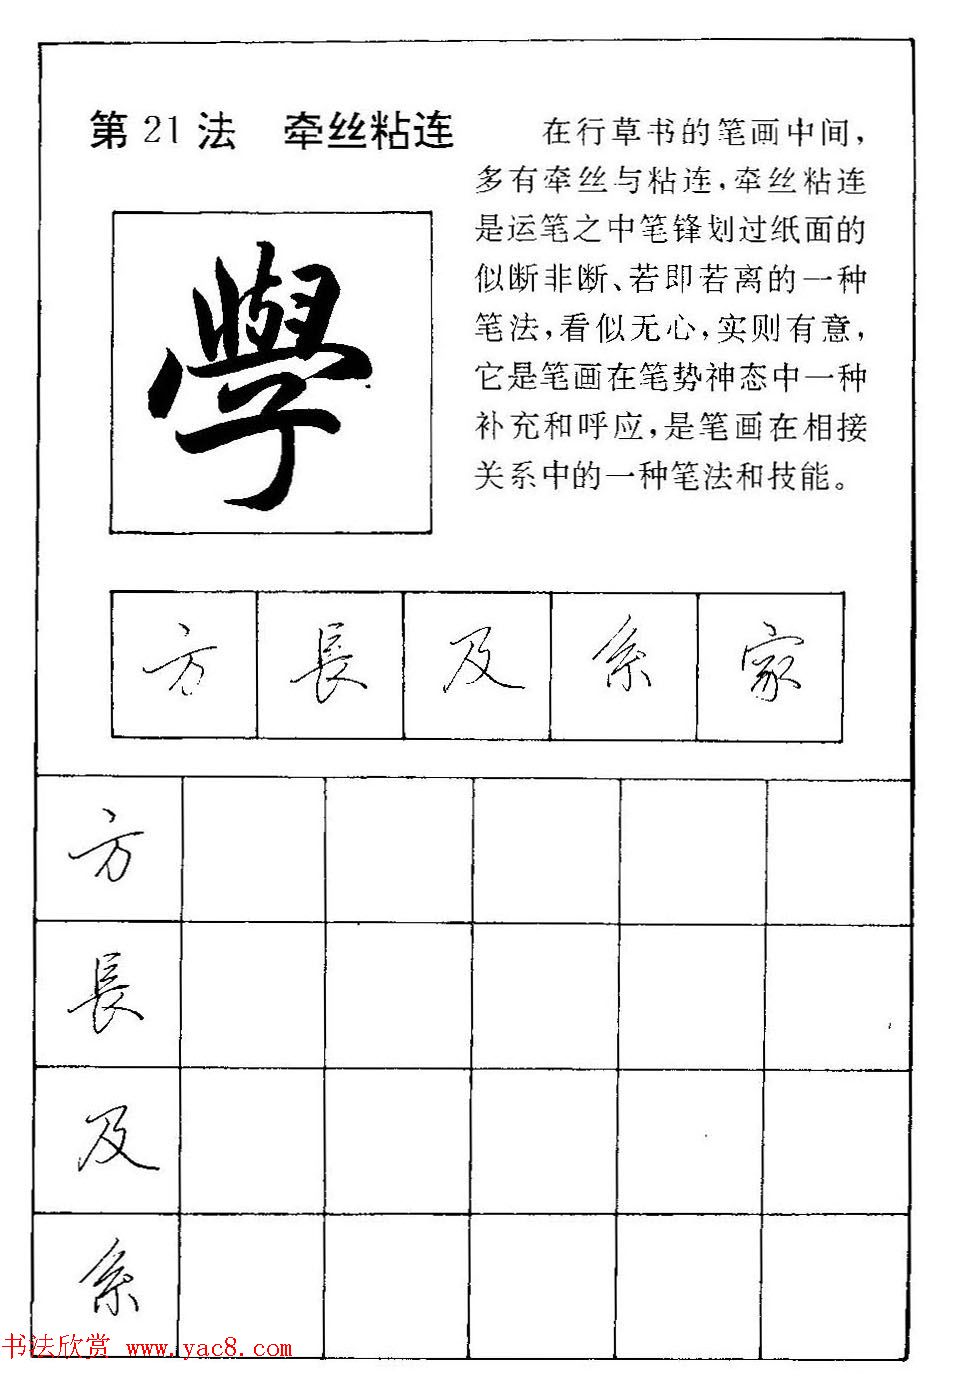 第21法 牵丝粘连
在行草书的笔画中间，
多有牵丝与粘连，牵丝粘连
是运笔之中笔锋划过纸面的
似断非断、若即若离的一种
笔法，看似无心，实则有意，
它是笔画在笔势神态中一种
补充和呼应，是笔画在相接
关系中的一种笔法和技能。
學
方 長 及 系 家
方
長
及
系
书法欣赏 www.yac8.com